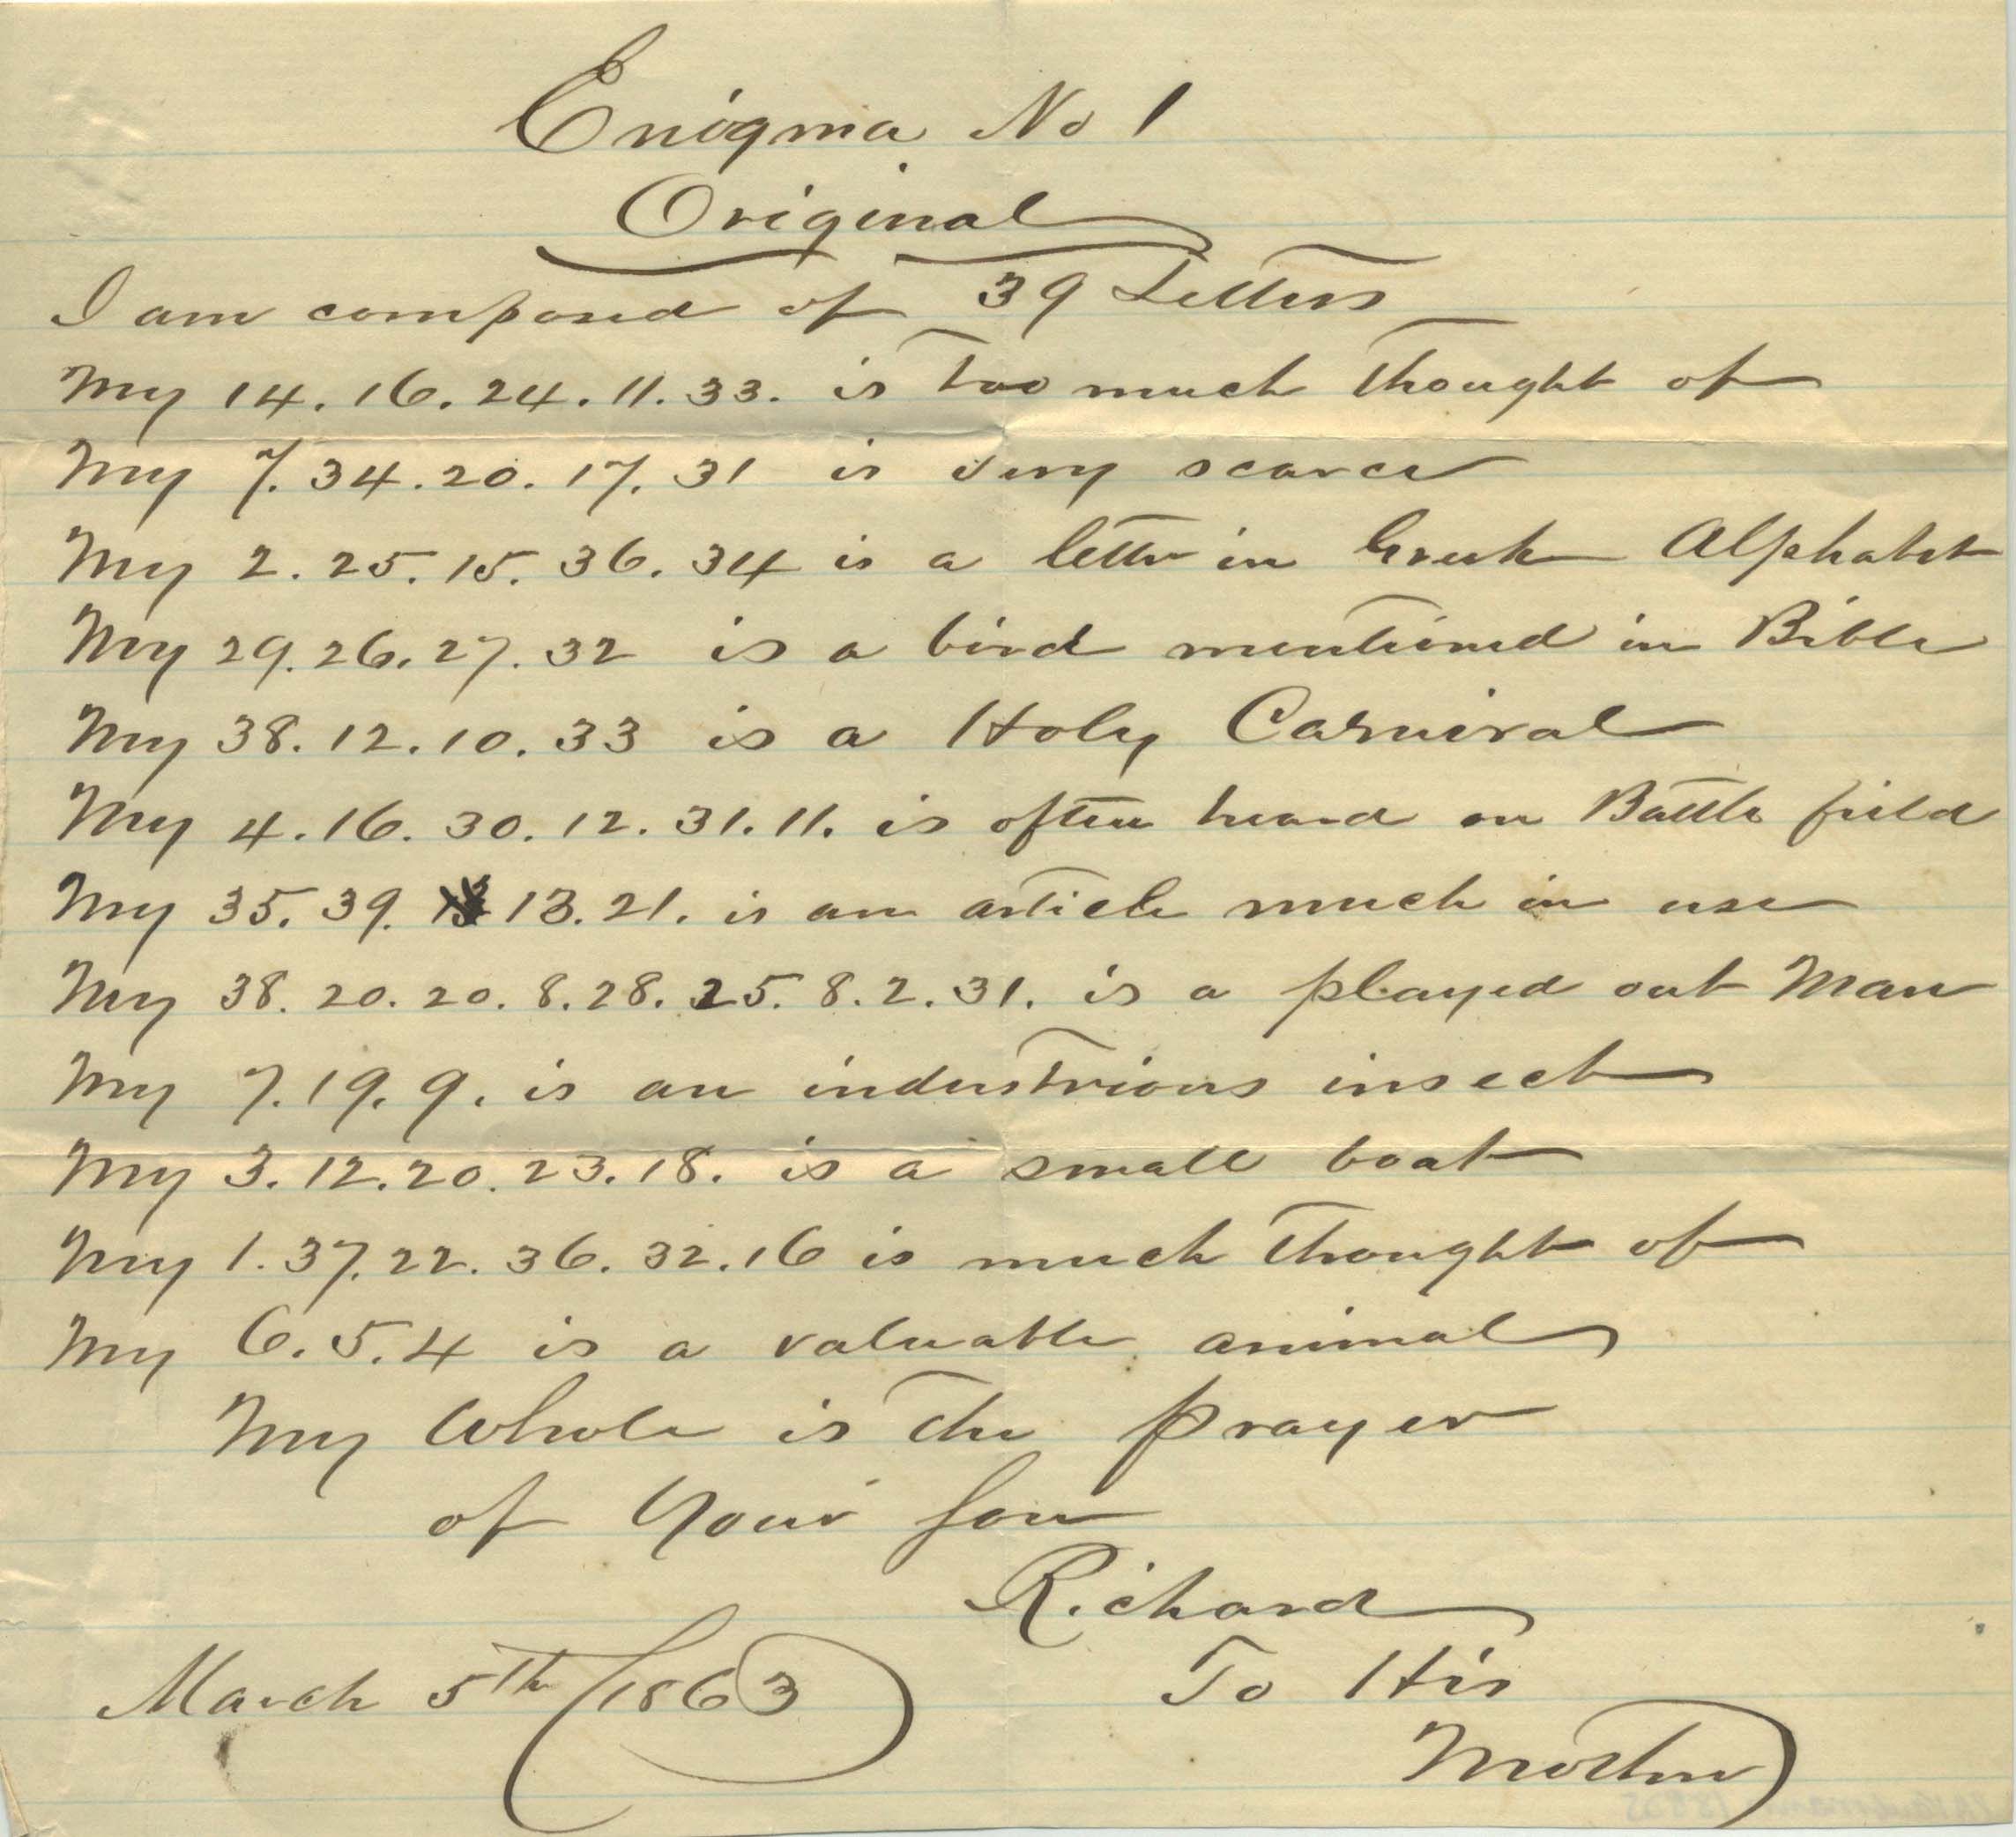 Enigma No 1
Original
I am composed of 39 Letters
My 14. 16. 24. 11. 33. is too much thought of
My 7. 34. 20. 17. 31 is very scarce
My 2. 25. 15. 36. 34 is a letter in Greek Alphabet
My 29. 26. 27. 32 is a bird mentioned in Bible
My 38. 12. 10. 33 is a Holy Carnival
My 4. 16. 30. 12. 31. 11. is often heard on Battle field
My 35. 39. 13. 21. is an article much in use
My 38. 20. 20. 8. 28. 25. 8. 2. 31. is a played out Man
My 7. 19. 9. is an industrious insect
My 3. 12. 20. 23. 18. is a small boat
My 1. 37. 22. 36. 32. 16 is much thought of
My 6. 5. 4 is a valuable animal
My Whole is the prayer
of Your Son
Richard
To His
March 5th 1863
Mother